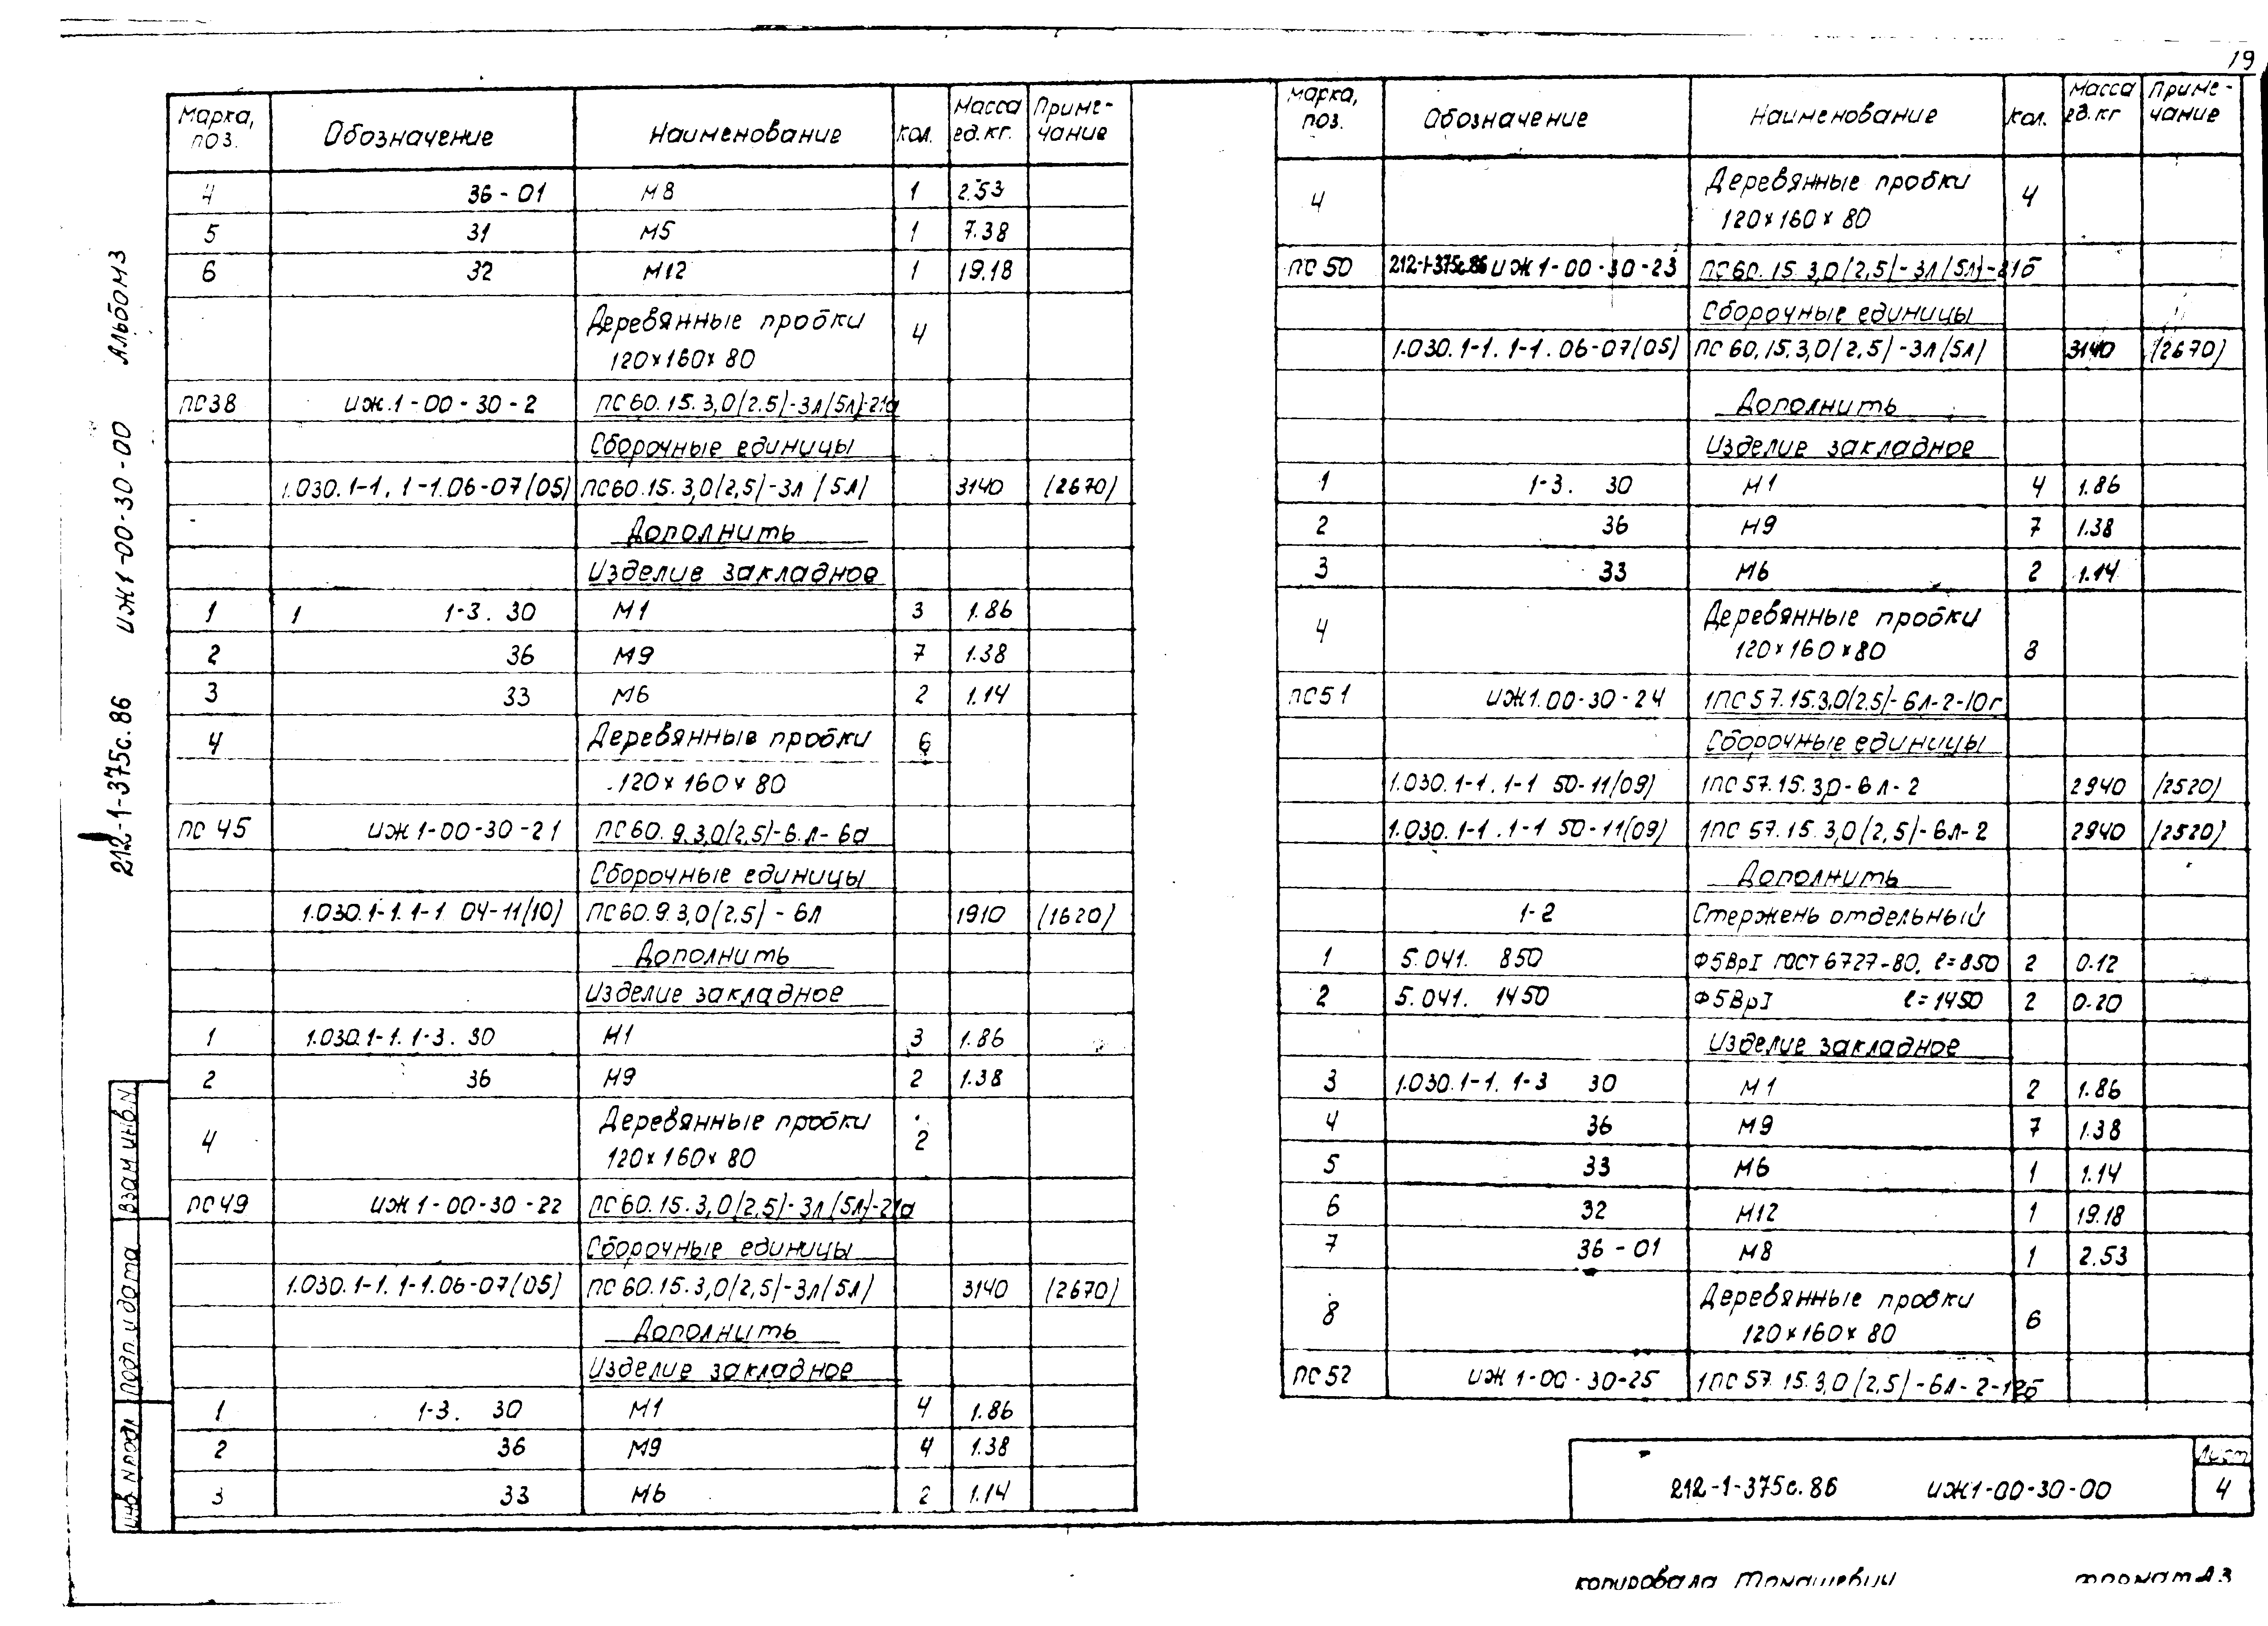 19
Марка, поз. Обозначение Наименование Кол. Масса ед.кг. Примечание
4 36-01 М8 1 2.53
5 31 М5 1 7.38
6 32 М12 1 19.18
Деревянные пробки 4
120×160×80
ПС38 ИЖ.1-00-30-2 ПС60.15.3,0(2.5)-3л(5л)-21а
Сборочные единицы
1.030.1-1.1-1.06-07(05) ПС60.15.3,0(2,5)-3л(5л) 3140 (2670)
Дополнить
Изделие закладное
1 1 1-3. 30 М1 3 1.86
2 36 М9 7 1.38
3 33 М6 2 1.14
4 Деревянные пробки 6
120×160×80
ПС45 ИЖ1-00-30-21 ПС60.9.3,0(2,5)-6.л-6а
Сборочные единицы
1.030.1-1.1-1 04-11(10) ПС60.9.3,0(2.5)-6л 1910 (1620)
Дополнить
Изделие закладное
1 1.030.1-1.1-3. 30 М1 3 1.86
2 36 М9 2 1.38
4 Деревянные пробки 2
120×160×80
ПС49 ИЖ1-00-30-22 ПС60.15.3,0(2,5)-3л(5л)-21а
Сборочные единицы
1.030.1-1.1-1.06-07(05) ПС60.15.3,0(2,5)-3л(5л) 3140 (2670)
Дополнить
Изделие закладное
1 1-3. 30 М1 4 1.86
2 36 М9 4 1.38
3 33 М6 2 1.14
Марка, поз. Обозначение Наименование Кол. Масса ед.кг Примечание
4 Деревянные пробки 4
120×160×80
ПС50 212-1-375с.86 ИЖ1-00-30-23 ПС60.15.3,0(2,5)-3л(5л)-21б
Сборочные единицы
1.030.1-1.1-1.06-07(05) ПС60.15.3,0(2,5)-3л(5л) 3140 (2670)
Дополнить
Изделие закладное
1 1-3. 30 М1 4 1.86
2 36 М9 7 1.38
3 33 М6 2 1.14
4 Деревянные пробки
120×160×80 8
ПС51 ИЖ1.00-30-24 1ПС57.15.3,0(2.5)-6л-2-10г
Сборочные единицы
1.030.1-1.1-1 50-11(09) 1ПС57.15.30-6л-2 2940 (2520)
1.030.1-1.1-1 50-11(09) 1ПС57.15.3,0(2,5)-6л-2 2940 (2520)
Дополнить
1-2 Стержень отдельный
1 5.041. 850 Ф5ВрI ГОСТ 6727-80, ℓ=850 2 0.12
2 5.041. 1450 Ф5ВрI ℓ=1450 2 0.20
Изделие закладное
3 1.030.1-1.1-3 30 М1 2 1.86
4 36 М9 7 1.38
5 33 М6 1 1.14
6 32 М12 1 19.18
7 36-01 М8 1 2.53
8 Деревянные пробки 6
120×160×80
ПС52 ИЖ1-00-30-25 1ПС57.15.3,0(2,5)-6л-2-12б
212-1-375с.86 ИЖ1-00-30-00 Лист 4
Копировала Томашевич Формат А3
212-1-375с.86 ИЖ1-00-30-00 Альбом 3
Инв.Nподл Подп. и дата Взам инв.N